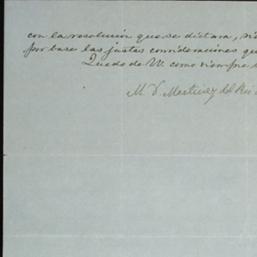 con la resolucion que se dictara,
por base las justas consideraciones que
Quedo de V. como siempre
M. V. Martinez del Rio